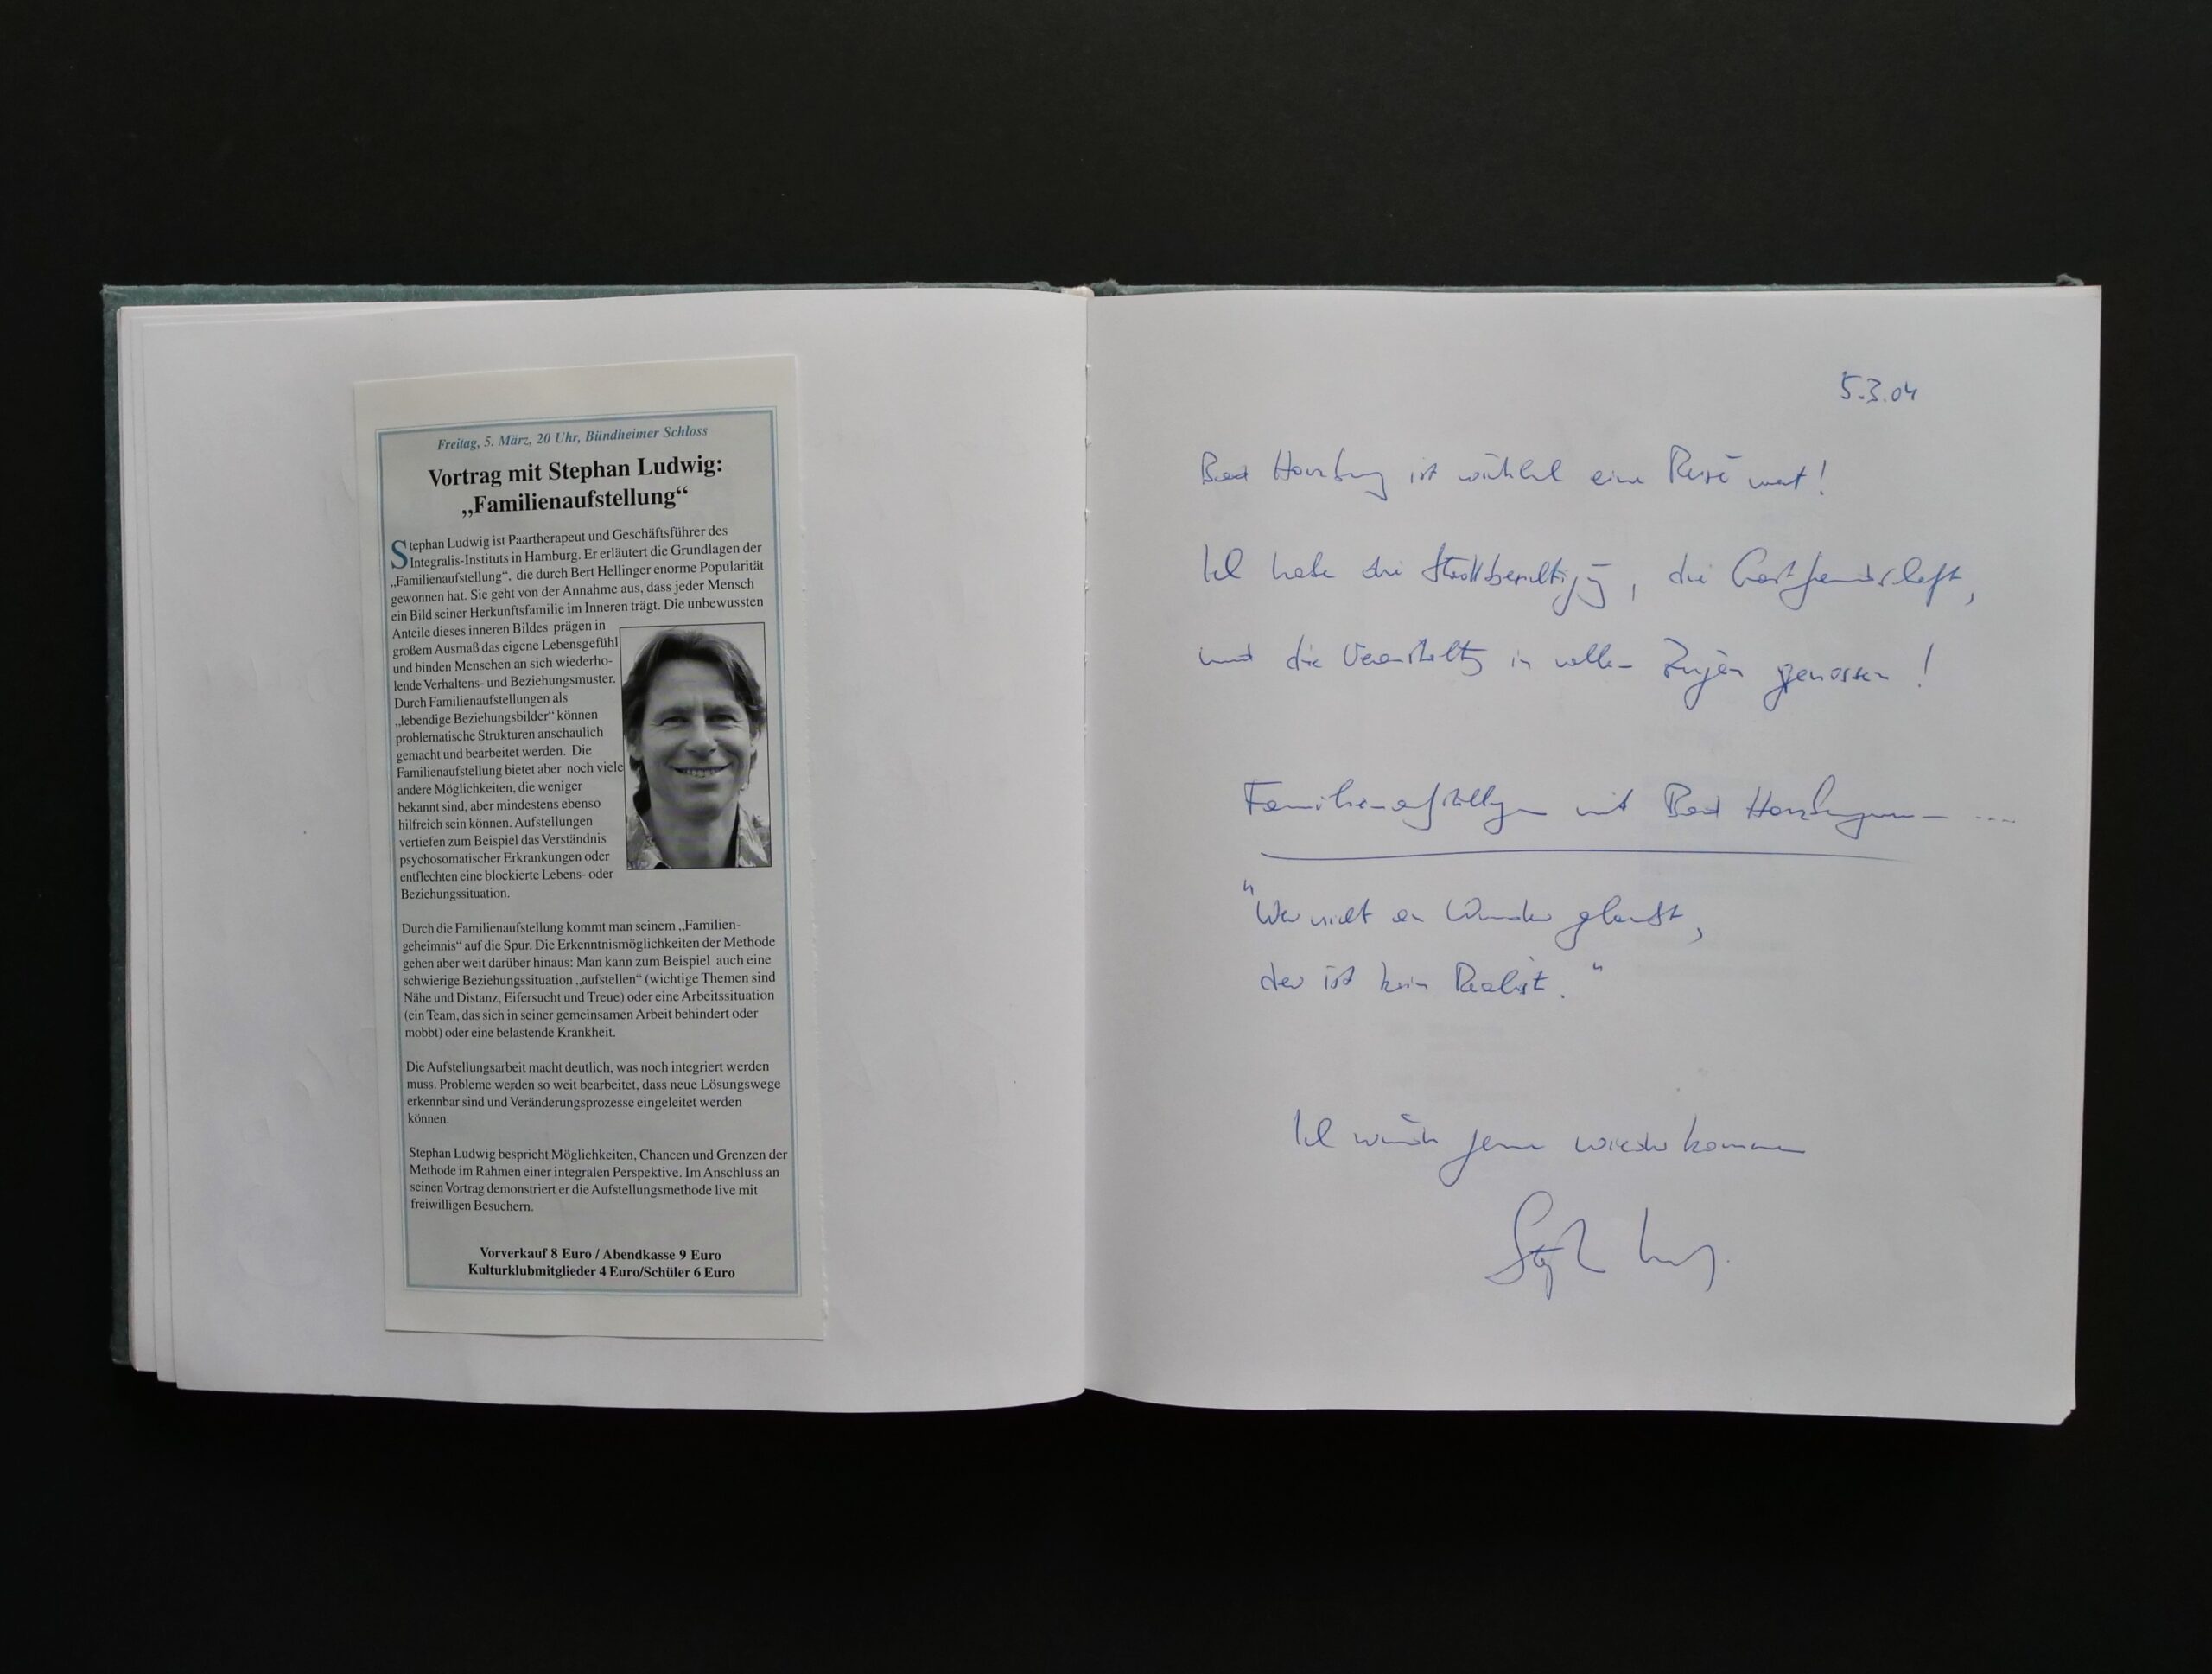 Freitag, 5. März, 20 Uhr, Bündheimer Schloss
Vortrag mit Stephan Ludwig:
„Familienaufstellung“
Stephan Ludwig ist Paartherapeut und Geschäftsführer des
Integralis-Instituts in Hamburg. Er erläutert die Grundlagen der
„Familienaufstellung“, die durch Bert Hellinger enorme Popularität
gewonnen hat. Sie geht von der Annahme aus, dass jeder Mensch
ein Bild seiner Herkunftsfamilie im Inneren trägt. Die unbewussten
Anteile dieses inneren Bildes prägen in
großem Ausmaß das eigene Lebensgefühl
und binden Menschen an sich wiederho-
lende Verhaltens- und Beziehungsmuster.
Durch Familienaufstellungen als
„lebendige Beziehungsbilder“ können
problematische Strukturen anschaulich
gemacht und bearbeitet werden. Die
Familienaufstellung bietet aber noch viele
andere Möglichkeiten, die weniger
bekannt sind, aber mindestens ebenso
hilfreich sein können. Aufstellungen
vertiefen zum Beispiel das Verständnis
psychosomatischer Erkrankungen oder
entflechten eine blockierte Lebens- oder
Beziehungssituation.
Durch die Familienaufstellung kommt man seinem „Familien-
geheimnis“ auf die Spur. Die Erkenntnismöglichkeiten der Methode
gehen aber weit darüber hinaus: Man kann zum Beispiel auch eine
schwierige Beziehungssituation „aufstellen“ (wichtige Themen sind
Nähe und Distanz, Eifersucht und Treue) oder eine Arbeitssituation
(ein Team, das sich in seiner gemeinsamen Arbeit behindert oder
mobbt) oder eine belastende Krankheit.
Die Aufstellungsarbeit macht deutlich, was noch integriert werden
muss. Probleme werden so weit bearbeitet, dass neue Lösungswege
erkennbar sind und Veränderungsprozesse eingeleitet werden
können.
Stephan Ludwig bespricht Möglichkeiten, Chancen und Grenzen der
Methode im Rahmen einer integralen Perspektive. Im Anschluss an
seinen Vortrag demonstriert er die Aufstellungsmethode live mit
freiwilligen Besuchern.
Vorverkauf 8 Euro / Abendkasse 9 Euro
Kulturklubmitglieder 4 Euro/Schüler 6 Euro
5.3.04
Bad Harzburg ist wirklich eine Reise wert!
Ich habe die Stadtbesichtigung, die Gastfreundschaft,
und die Veranstaltung in vollen Zügen genossen!
Familienaufstellungen mit Bad Harzburgern ....
"Wer nicht an Wunder glaubt,
der ist kein Realist."
Ich würde gerne wieder kommen
Stephan Ludwig